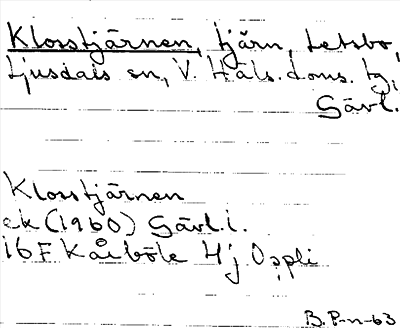 Klosstjärnen, tjärn, Letsbo,
Ljusdals sn, V. Häls. doms. tg,
Gävl.
Klosstjärnen
ek (1960) Gävl. l.
16F Kårböle Hj Oppli
B. P-n-63